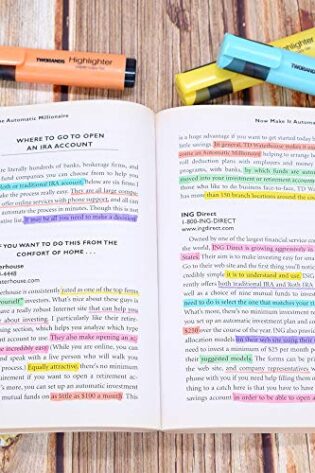 TWOHANDS
Highlighter
Highlighter
he Automatic Millionaire
Now Make It Automa
WHERE TO GO TO OPEN
AN IRA ACCOUNT
are literally hundreds of banks, brokerage firms, and
fund companies you can choose from to help you
Roth or traditional IRA account. Below are six firms I
make the process really easy. They are all large compa-
offer online services with phone support, and all can
automate the process in minutes. Though this is not
ive list, it may be all you need to make a decision
F YOU WANT TO DO THIS FROM THE
COMFORT OF HOME . . .
erhouse
-4448
terhouse.com
terhouse is consistently rated as one of the top firms
yourself" investors. What's nice about these guys is
have a really robust Internet site that can help you
about investing. I particularly like their retire-
ing section, which helps you analyze which type
ent account to use. They also make opening an ac-
e incredibly easy! (While you are online, you can
nd speak with a live person who will walk you
process.) Equally attractive, there's no minimum
uirement if you want to open a retirement ac-
t's more, you can set up an automatic investment
mutual funds on as little as $100 a month. This
is a huge advantage if you want to get started today b
little savings. In general, TD Waterhouse makes it eas
come an Automatic Millionaire, helping to arrange b
roll deduction plans with employers and money
programs, with banks, by which funds are automa
moved into your investment or retirement accounts
those who like to do business face-to-face, TD Wat
has more than 150 branch locations around the coun
ING Direct
1-800-ING-DIRECT
www.ingdirect.com
Owned by one of the largest financial service compan
the world, ING Direct is growing aggressively in
States. Their aim is to make investing easy for you
Go to their web site and the first thing you'll notic
credibly simple it is to understand and use. ING
rently offers both traditional IRA and Roth IRA
well as a choice of nine mutual funds to invest
need to do is select the one that matches your ri
What's more, there's no minimum investment to
you set up an automatic investment plan and co
$250 over the course of the year. ING also prov
allocation models on their web site using their
need to invest a minimum of $25 per month p
their suggested models. The forms can be prin
the web site, and company representatives w
phone with you if you need help filling them
thing to a catch here is that you have to ope
savings account in order to be able to open